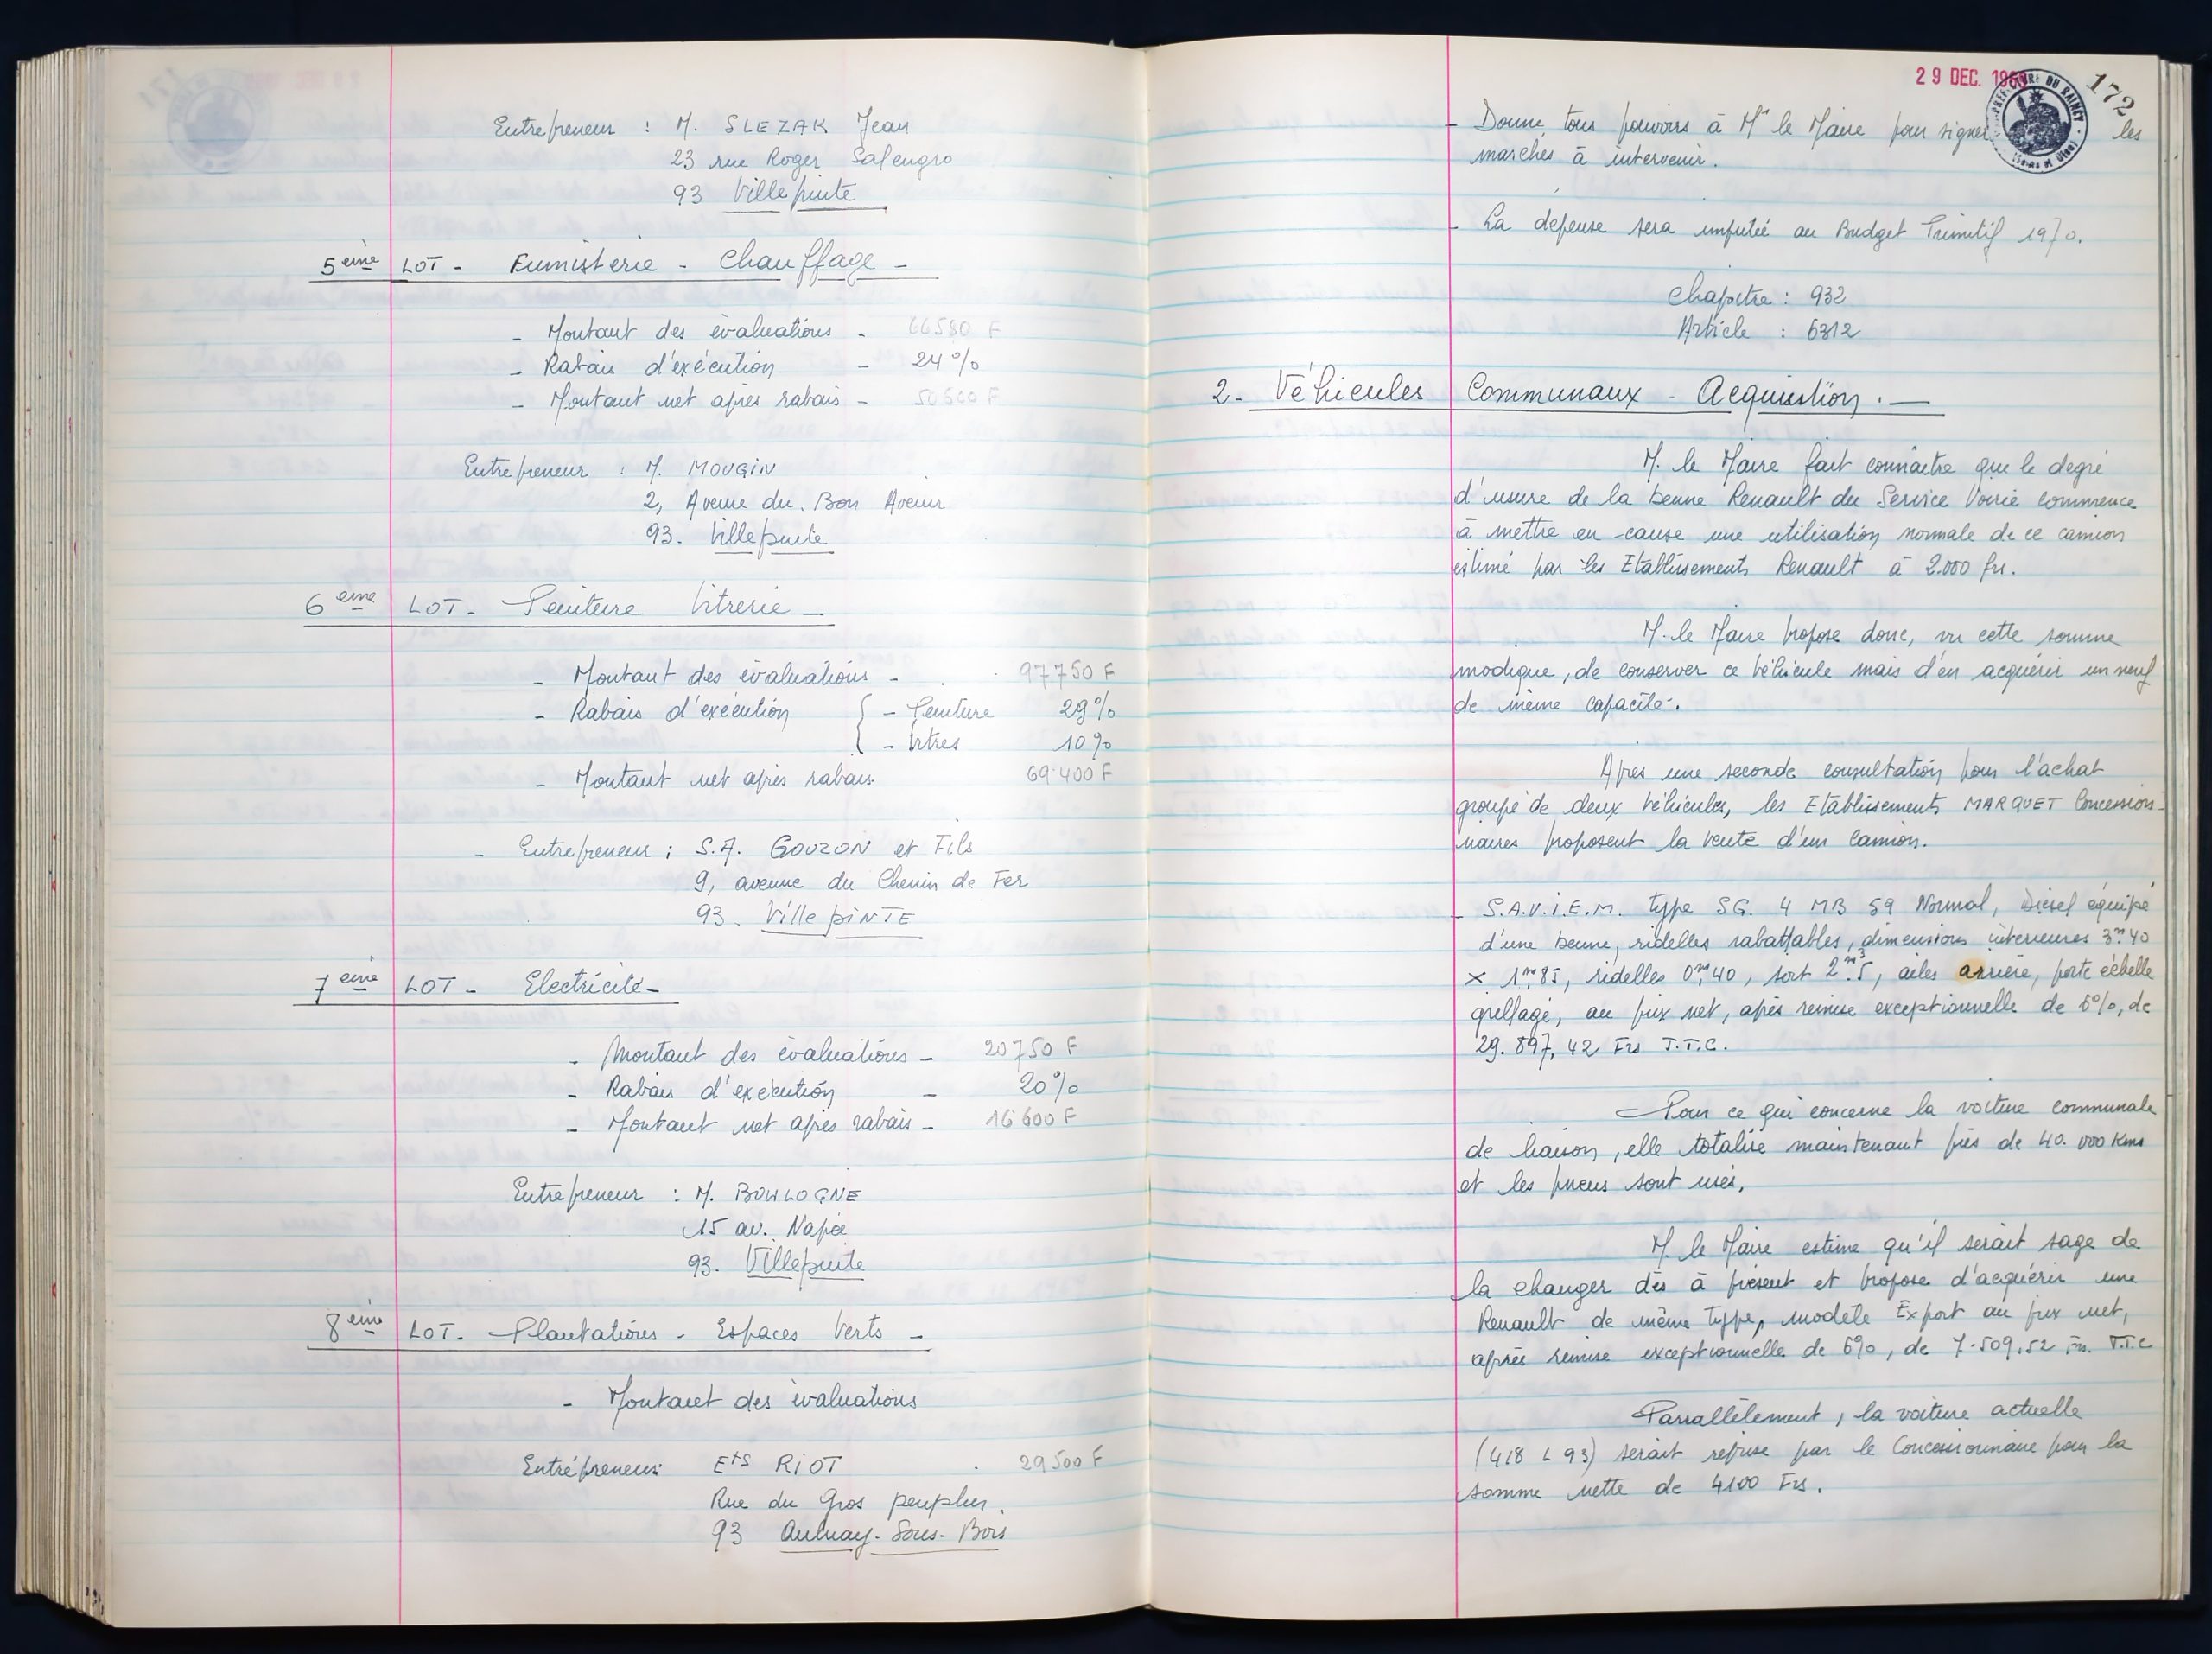 Entrepreneur : M. SLEZAK Jean
23 rue Roger Salengro
93 Villepinte
5ème LOT - Fumisterie - Chauffage -
- Montant des évaluations - 66580 F
- Rabais d'exécution - 24 %
- Montant net après rabais - 50600 F
Entrepreneur : M. MOUGIN
2, Avenue du Bon Avenir
93. Villepinte
6ème LOT - Peinture Vitrerie -
- Montant des évaluations - 97750 F
- Rabais d'exécution { - Peinture 29 %
{ - Vitres 10 %
- Montant net après rabais 69.400 F
- Entrepreneur : S.A. GOUZON et Fils
9, avenue du Chemin de Fer
93. VillepiNTE
7ème LOT - Electricité -
- Montant des évaluations - 20750 F
- Rabais d'exécution - 20 %
- Montant net après rabais - 16600 F
Entrepreneur : M. BOULOGNE
15 av. Napée
93. Villepinte
8ème LOT - Plantations - Espaces Verts -
- Montant des évaluations
Entrepreneur: Ets RIOT 29500 F
Rue du Gros peuplier
93 Aulnay-Sous-Bois
29 DEC. 1969
172
- Donne tous pouvoirs à Mr le Maire pour signer les
marchés à intervenir.
- La dépense sera imputée au Budget Primitif 1970.
Chapitre : 932
Article : 6312
2 - Véhicules Communaux - Acquisition. -
M. le Maire fait connaître que le degré
d'usure de la benne Renault du Service Voirie commence
à mettre en cause une utilisation normale de ce camion
estimé par les Etablissements Renault à 2.000 frs.
M. le Maire propose donc, vu cette somme
modique, de conserver ce véhicule mais d'en acquérir un neuf
de même capacité.
Après une seconde consultation pour l'achat
groupé de deux véhicules, les Etablissements MARQUET Concession-
naires proposent la vente d'un Camion.
- S.A.V.I.E.M. type SG. 4 MB 59 Normal, Diesel équipé
d'une benne, ridelles rabattables, dimensions intérieures 3m40
x 1m,85, ridelles 0m,40, soit 2m3.5, ailes arrière, porte échelle
grillagé, au prix net, après remise exceptionnelle de 6%, de
29.897,42 Frs T.T.C.
Pour ce qui concerne la voiture communale
de liaison, elle totalise maintenant près de 40.000 Kms
et les pneus sont usés.
M. le Maire estime qu'il serait sage de
la changer dès à présent et propose d'acquérir une
Renault de même type, modèle Export au prix net,
après remise exceptionnelle de 6%, de 7.509,52 Frs. T.T.C
Parrallèlement, la voiture actuelle
(418 L 93) serait reprise par le Concessionnaire pour la
somme nette de 4100 Frs.